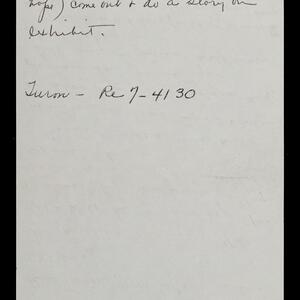 hope) come out & do a story on
exhibit.
Turon - Re 7-4130